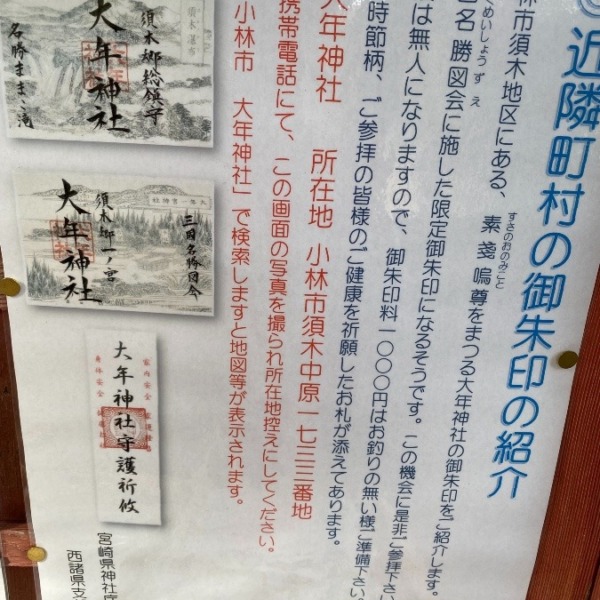 近隣町村の御朱印の紹介
林市須木地区にある、素戔嗚尊をまつる大年神社の御朱印をご紹介します。
すさのおのみこと
名勝図会に施した限定御朱印になるそうです。この機会に是非ご参拝下さい
めいしょうずえ
は無人になりますので、御朱印料一〇〇〇円はお釣りの無い様ご準備下さい。
時節柄、ご参拝の皆様のご健康を祈願したお札が添えてあります。
大年神社 所在地 小林市須木中原一七三三番地
携帯電話にて、この画面の写真を撮られ所在地控えにしてください。
小林市 大年神社」で検索しますと地図等が表示されます。
須木郷総鎮守
大年神社
名勝まま、滝
三国名勝図会
須木郷一ノ宮
大年神社
家内安全
大年神社守護祈攸
身体安全
宮崎県神社庁
西諸県支